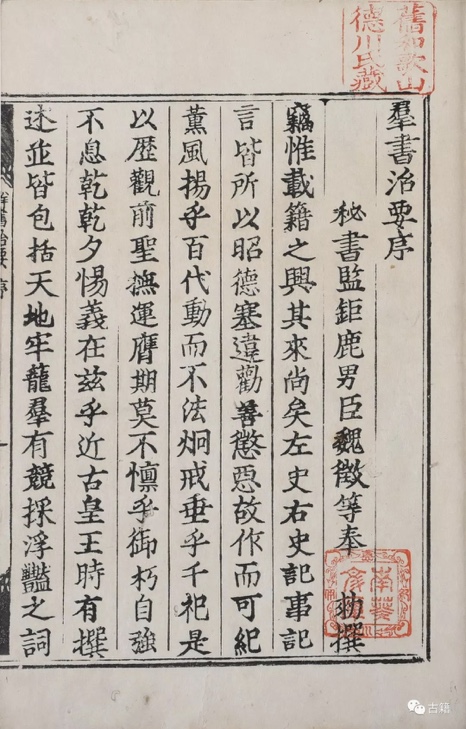 羣書治要序
秘書監鉅鹿男臣魏徵等奉 勑撰
竊惟載籍之興其來尚矣左史右史記事記
言皆所以昭德塞違勸善懲惡故作而可紀
薰風揚乎百代動而不法炯戒垂乎千祀是
以歷觀前聖撫運膺期莫不懍乎御朽自強
不息乾乾夕惕義在茲乎近古皇王時有撰
述並皆包括天地牢籠羣有競採浮豔之詞
羣書治要 序
舊和歌山
德川氏藏
南葵
古籍